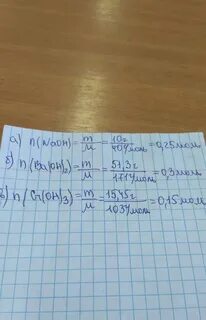 а) n(NaOH) = m/M = 10г/40г/моль = 0,25моль
б) n(Ba(OH)₂) = m/M = 51,3г/171г/моль = 0,3моль
в) n(Cr(OH)₃) = m/M = 15,45г/103г/моль = 0,15моль